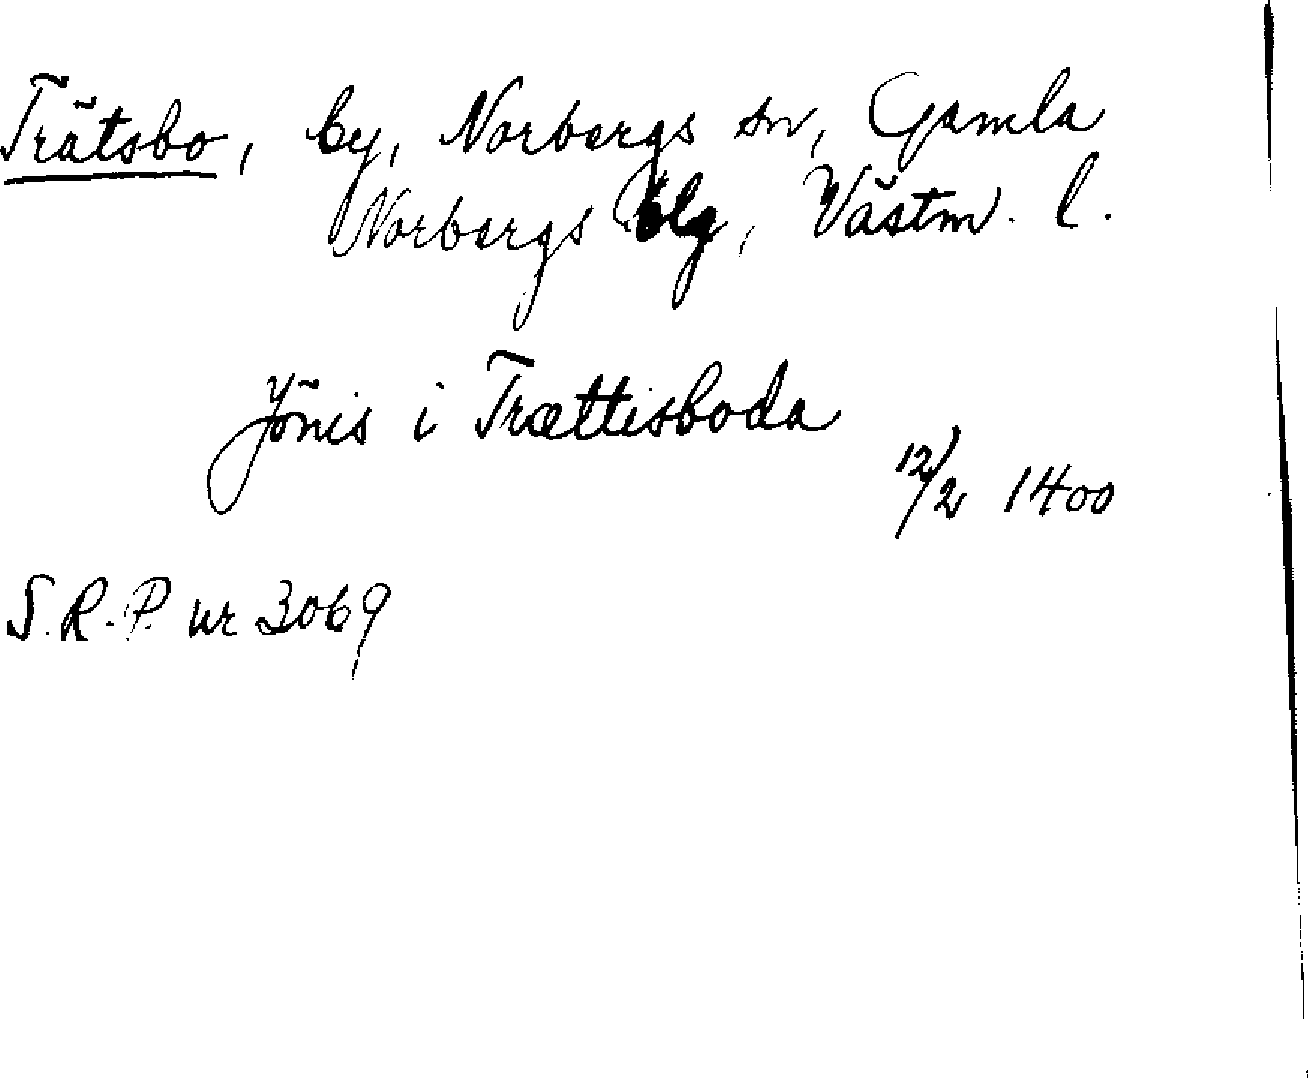 Trätsbo, by, Norbergs sn, Gamla
Norbergs blg, Västm. l.
Jönis i Trættisboda
12/2 1400
S.R.P. nr 3069